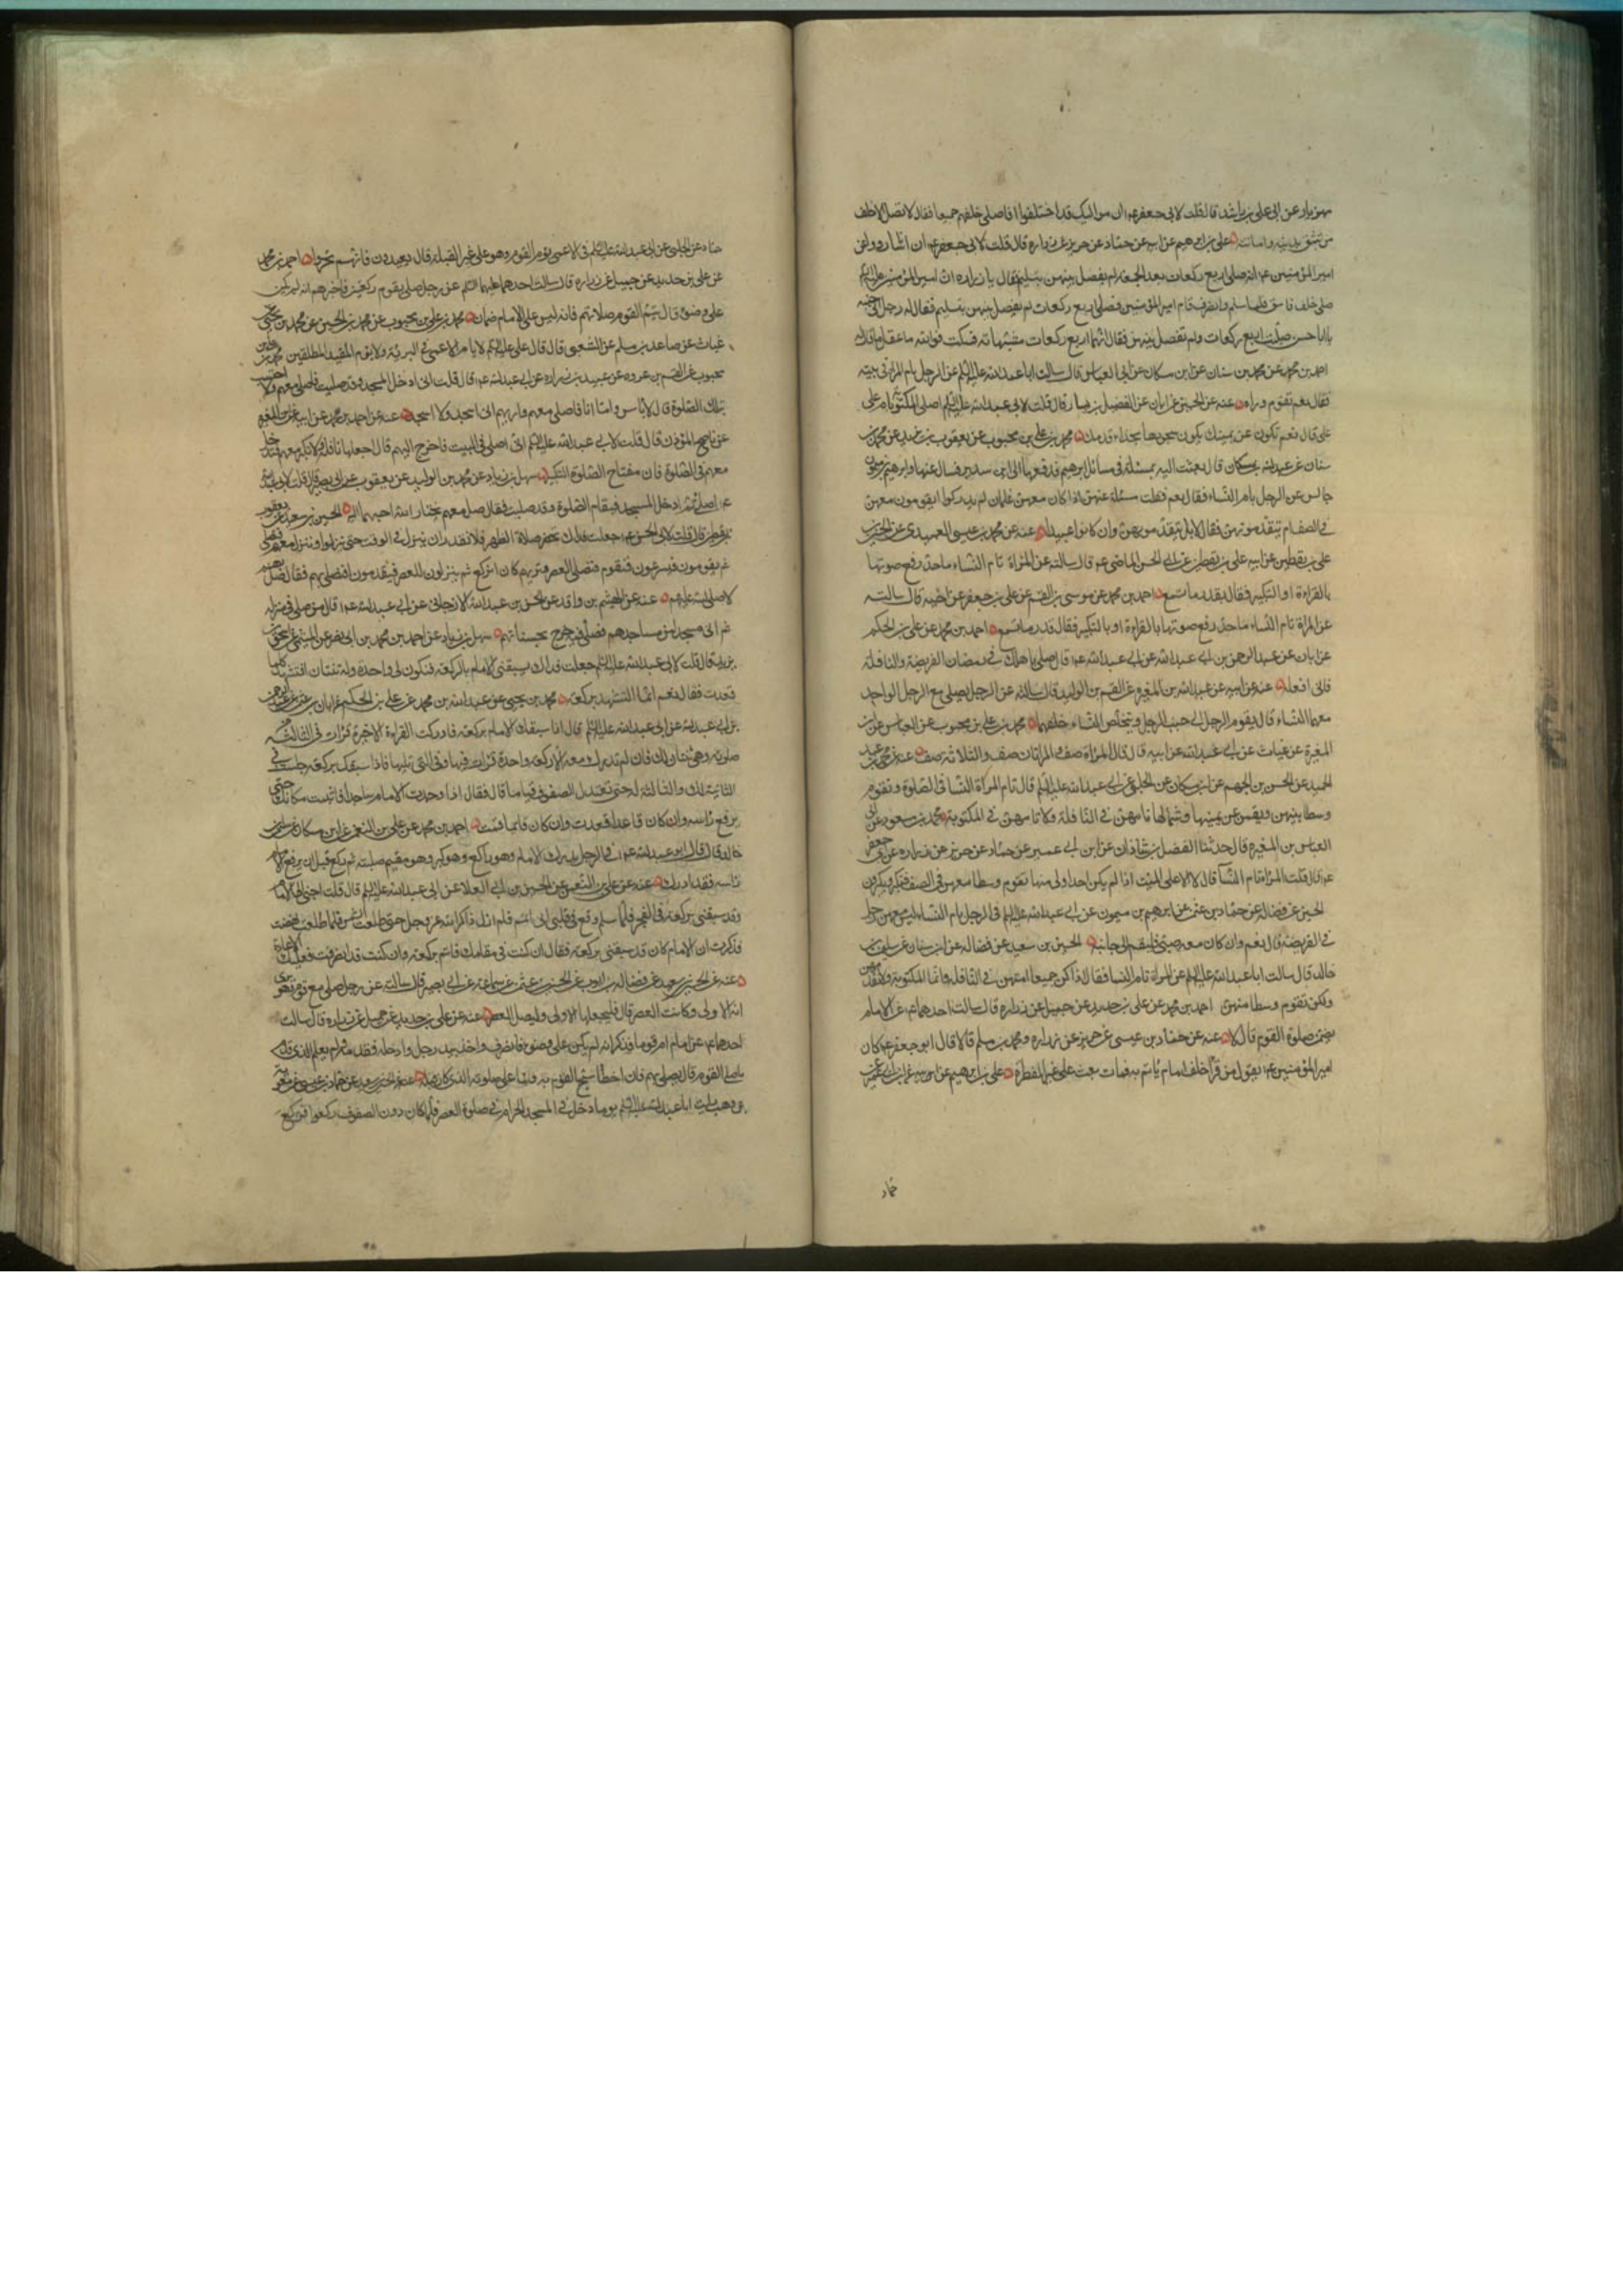 مهزيار عن ابى على بن راشد قال قلت لابى جعفر ع ان مواليك قد اختلفوا افاصلى خلفهم جميعا فقال لا تصل الا خلف
من تثق بدينه وامانته على بن ابرهيم عن ابيه عن حماد عن حريز عن زراره قال قلت لابى جعفر ع ان اناسا رووا عن
امير المؤمنين ع انه صلى اربع ركعات بعد الجمعة لم يفصل بينهن بتسليم فقال يا زراره ان امير المؤمنين عليه السلم
صلى خلف فاسق فلما سلم وانصرف قام امير المؤمنين فصلى اربع ركعات لم يفصل بينهن بتسليم فقال له رجل الى جنبه
يا ابا حسن صليت اربع ركعات ولم تفصل بينهن فقال انها اربع ركعات مشبهات فسكت فوالله ما عقل ما قال له
احمد بن محمد عن محمد بن سنان عن ابن مسكان عن ابى العباس قال سالت ابا عبد الله عليه السلم عن الرجل يام المراة فى بيته
فقال نعم تقوم وراءه عنه عن الحسين عن ابان عن الفضيل بن يسار قال قلت لابى عبد الله عليه السلم اصلى المكتوبة بام على
على قال نعم تكون عن يمينك يكون سجودها بحذاء قدميك محمد بن على بن محبوب عن يعقوب بن يزيد عن محمد بن
سنان عن عبد الله بن مسكان قال بعثت اليه بمسئلة فى مسائل ابرهيم فدفعها الى ابن سدير فسال عنها وابرهيم بن ميمون
جالس عن الرجل يام النساء فقال نعم فقلت سئله عنهن اذا كان معهن غلمان لم يدركوا ايقومون معهن
فى الصف ام يتقدمونهن فقال لا بل يتقدمونهن وان كانوا عبيدا عنه عن محمد بن عيسى العبيدى عن الحسن بن
على بن يقطين عن ابيه على بن يقطين عن ابى الحسن الماضى ع قال سالته عن المراة تام النساء ما حد رفع صوتها
بالقراءة او التكبير فقال بقدر ما تسمع احمد بن محمد عن موسى بن القسم عن على بن جعفر عن اخيه قال سالته
عن المراة تام النساء ما حد رفع صوتها بالقراءة او بالتكبير فقال قدر ما تسمع احمد بن محمد عن على بن الحكم
عن ابان عن عبد الرحمن بن ابى عبد الله عن ابى عبد الله ع قال صلى باهلك فى رمضان الفريضة والنافلة
فانى افعله عنه عن ابيه عن عبد الله بن المغيرة عن القسم بن الوليد قال سالته عن الرجل يصلى مع الرجل الواحد
معهما النساء قال يقوم الرجل الى جنب الرجل ويتخلفن النساء خلفهما محمد بن على بن محبوب عن العباس عن ابن
المغيرة عن غياث عن ابى عبد الله عن ابيه قال قال المراة صف والمراتان صف والثلاثة صف عنه عن محمد بن عبد
الحميد عن الحسن بن الجهم عن ابن مسكان عن الحلبى عن ابى عبد الله عليه السلم قال تام المراة النساء فى الصلوة وتقوم
وسطا بينهن ويقمن عن يمينها وشمالها تامهن فى النافلة ولا تامهن فى المكتوبة محمد بن مسعود عن ابى
العباس بن المغيرة قال حدثنا الفضل بن شاذان عن ابن ابى عمير عن حماد عن حريز عن زراره عن ابى جعفر
ع قال قلت المراة تام النساء قال لا الا على الميت اذا لم يكن احد اولى منها تقوم وسطا معهن فى الصف فتكبر ويكبرن
الحسين عن فضالة عن حماد بن عثمن عن ابرهيم بن ميمون عن ابى عبد الله عليه السلم فى الرجل يام النساء ليس معهن رجل
فى الفريضة قال نعم وان كان معه صبى فليقم الى جانبه الحسين بن سعيد عن فضالة عن ابن سنان عن سليمن بن
خالد قال سالت ابا عبد الله عليه السلم عن المراة تام النسا فقال اذا كن جميعا امتهن فى النافلة واما المكتوبة فلا ولا تقدمهن
ولكن تقوم وسطا منهن احمد بن محمد عن على بن حديد عن جميل عن زراره قال سالت احدهما ع عن الامام
يضمن صلوة القوم قال لا عنه عن حماد بن عيسى عن حريز عن زراره ومحمد بن مسلم قالا قال ابو جعفر ع كان
امير المؤمنين ع يقول من قرا خلف امام ياتم به فمات بعث على غير الفطرة على بن ابرهيم عن ابيه عن ابن ابى عمير عن
حماد
حماد عن الحلبى عن ابى عبد الله عليه السلم فى الاعمى يؤم القوم وهو على غير القبلة قال يعيد ولا يعيدون فانهم تحروا احمد بن محمد
عن على بن حديد عن جميل عن زراره قال سالت احدهما عليهما السلم عن رجل صلى بقوم ركعتين فاخبرهم انه لم يكن
على وضوء قال يتم القوم صلاتهم فانه ليس على الامام ضمان محمد بن على بن محبوب عن محمد بن الحسين عن محمد بن يحيى عن
غياث عن صاعد بن مسلم عن الشعبى قال قال على عليه السلم لا يام الاعمى فى البرية ولا يؤم المقيد المطلقين محمد بن على بن
محبوب عن القسم بن عروه عن عبيد بن زراره عن ابى عبد الله ع قال قلت انى ادخل المسجد وقد صليت فاصلى معهم ولا احتسب
بتلك الصلوة قال لا باس واما انا فاصلى معهم واريهم انى اسجد وما اسجد عنه عن احمد بن محمد عن ابيه عن ابن المغيرة
عن ناصح المؤذن قال قلت لابى عبد الله عليه السلم انى اصلى فى البيت فاخرج اليهم قال اجعلها نافلة ولا تكبر معهم فتدخل
معهم فى الصلوة فان مفتاح الصلوة التكبير سهل بن زياد عن محمد بن الوليد عن يعقوب عن ابى بصير قال قلت لابى عبد الله
ع اصلى ثم ادخل المسجد فيقام الصلوة وقد صليت فقال صل معهم يختار الله احبهما اليه الحسين بن سعيد عن يعقوب
بن يقطين قال قلت لابى الحسن ع جعلت فداك تحضر صلاة الظهر فلا نقدر ان ننزل فى الوقت حتى ينزلوا وننزل معهم فنصلى
ثم يقومون فيسرعون فنقوم فنصلى العصر ونريهم كانا نركع ثم ينزلون للعصر فيقدمونا فنصلى بهم فقال صل بهم
لا صلى الله عليهم عنه عن الهيثم بن واقد عن الحسن بن عبد الله الارجانى عن ابى عبد الله ع قال من صلى فى منزله
ثم اتى مسجدا من مساجدهم فصلى فيه خرج بحسناتهم سهل بن زياد عن احمد بن محمد بن ابى نصر عن الميثمى عن اسحق بن
يزيد قال قلت لابى عبد الله عليه السلم جعلت فداك يسبقنى الامام بالركعة فتكون لى واحدة وله ثنتان افتشهد كلما
قعدت فقال نعم انما التشهد بركعة محمد بن يحيى عن عبد الله بن محمد عن على بن الحكم عن ابان بن عثمن عن عبد الرحمن
بن ابى عبد الله عن ابى عبد الله عليه السلم قال اذا سبقك الامام بركعة فادركت القراءة الاخيرة قرات فى الثالثة من
صلوته وهى ثنتان لك فان لم تدرك معه الا ركعة واحدة قرات فيها وفى التى تليها فاذا سبقك بركعة جلست فى
الثانية لك والثالثة له حتى تعتدل الصفوف قياما قال فقال اذا وجدت الامام ساجدا فاثبت مكانك حتى
يرفع راسه وان كان قاعدا قعدت وان كان قائما قمت احمد بن محمد عن على بن النعمن عن ابن مسكان عن سليمن بن
خالد قال قال ابو عبد الله ع فى الرجل يدرك الامام وهو راكع وهو كبر وهو مقيم صلبه ثم ركع قبل ان يرفع الامام
راسه فقد ادرك عنه عن على بن النعمن عن الحسين بن ابى العلا عن ابى عبد الله عليه السلم قال قلت اجئ الى الامام
وقد سبقنى بركعة فى الفجر فلما سلم وقع فى قلبى انى اتممت فلم ازل ذاكرا لله عز وجل حتى طلعت الشمس فلما طلعت نهضت
فذكرت ان الامام كان قد سبقنى بركعة فقال ان كنت فى مقامك فاتم بركعة وان كنت قد انصرفت فعليك الاعادة
عنه عن الحسين بن سعيد عن فضالة بن ايوب عن الحسين بن عثمن عن سماعة عن ابى بصير قال سالته عن رجل صلى مع قوم وهو يرى
انها الاولى وكانت العصر قال فليجعلها الاولى وليصل العصر عنه عن على بن حديد عن جميل عن زراره قال سالت
احدهما ع عن امام ام قوما فذكر انه لم يكن على وضوء فانصرف واخذ بيد رجل وادخله فقدمه ولم يعلم الذى قدم
ما صلى القوم قال يصلى بهم فان اخطا سبح القوم به وبنى على صلوته الذى كان قبله عنه عن الحسين بن سعيد عن حماد بن عيسى عن معوية
بن وهب رايت ابا عبد الله عليه السلم يوما دخل فى المسجد الحرام فى صلوة العصر فلما كان دون الصفوف ركعوا فركع